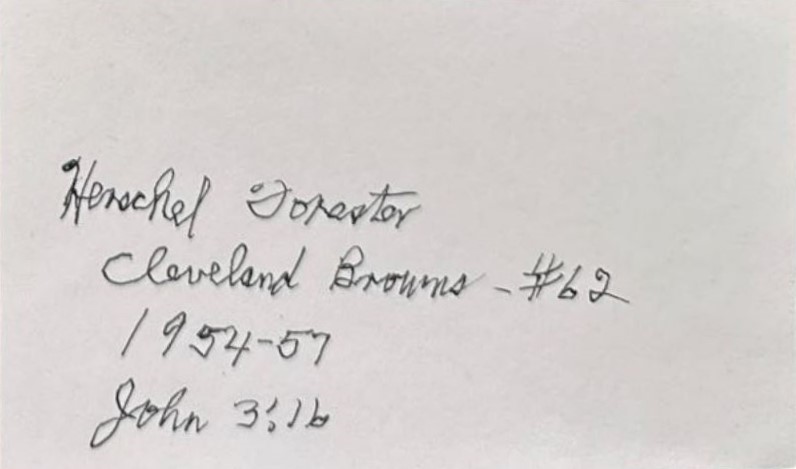 Herschel Forester
Cleveland Browns - #62
1954-57
John 3:16